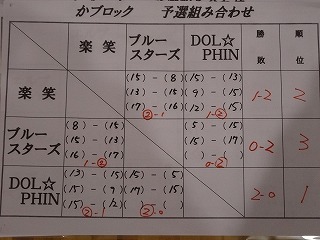 かブロック 予選組み合わせ
楽笑 ブルースターズ DOL☆PHIN 勝敗 順位
楽笑 (15)-(8) (15)-(13)
(13)-(15) (9)-(15) 1-2 2
(17)-(16) (12)-(15)
②-1 1-②
ブルースターズ (8)-(15) (5)-(15)
(15)-(13) (15)-(17) 0-2 3
(16)-(17) ( )-( )
1-② 0-②
DOL☆PHIN (13)-(15) (15)-(5)
(15)-(9) (17)-(15) 2-0 1
(15)-(12) ( )-( )
②-1 ②-0